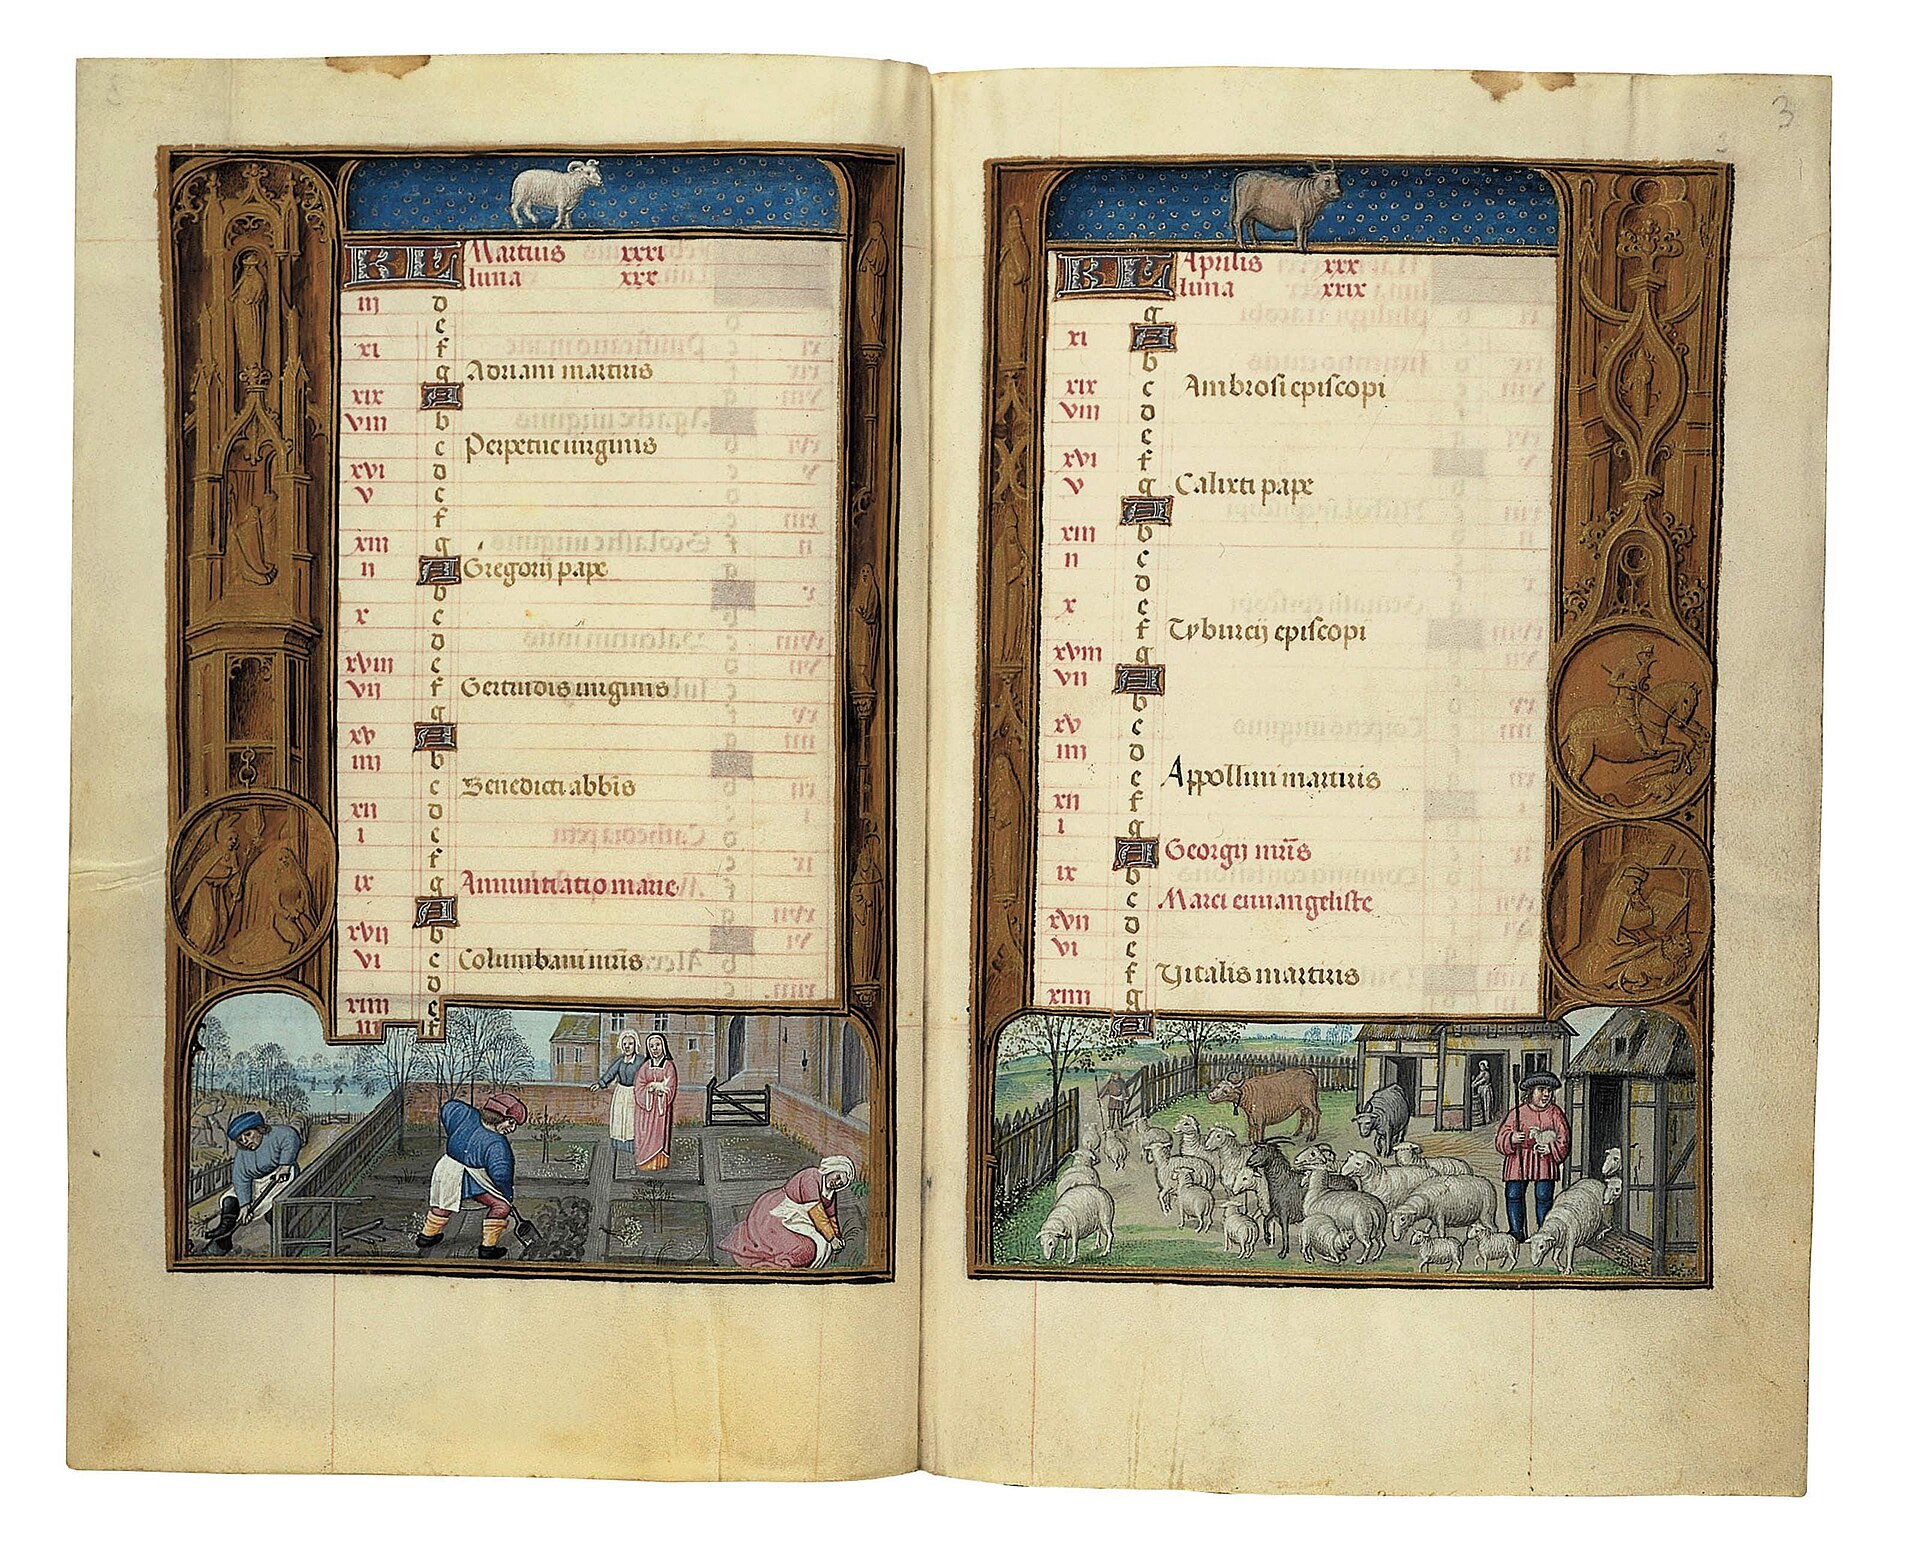 KL Martius xxxi
luna xxx
iij d
e
xi f
g Adriani martiris
xix A
viii b
c Perpetue virginis
xvi d
v e
f
xiii g
ii A Gregorij pape
b
x c
d
xviii e
vii f Gertrudis virginis
g
xv A
iiii b
c Benedicti abbīs
xii d
i e
f
ix g Annuntiatio marie
A
xvii b
vi c Columbani mrīs
d
xiiii e
iii f
3
KL Aprilis xxx
luna xxix
g
xi A
b
xix c Ambrosi episcopi
viii d
e
xvi f
v g Calixti pape
A
xiii b
ii c
d
x e
f Tyburcij episcopi
xviii g
vii A
b
xv c
iiii d
e Appollini martiris
xii f
i g
A Georgij mrīs
ix b
c Marci euuangeliste
xvii d
vi e
f Vitalis martiris
xiiii g
A